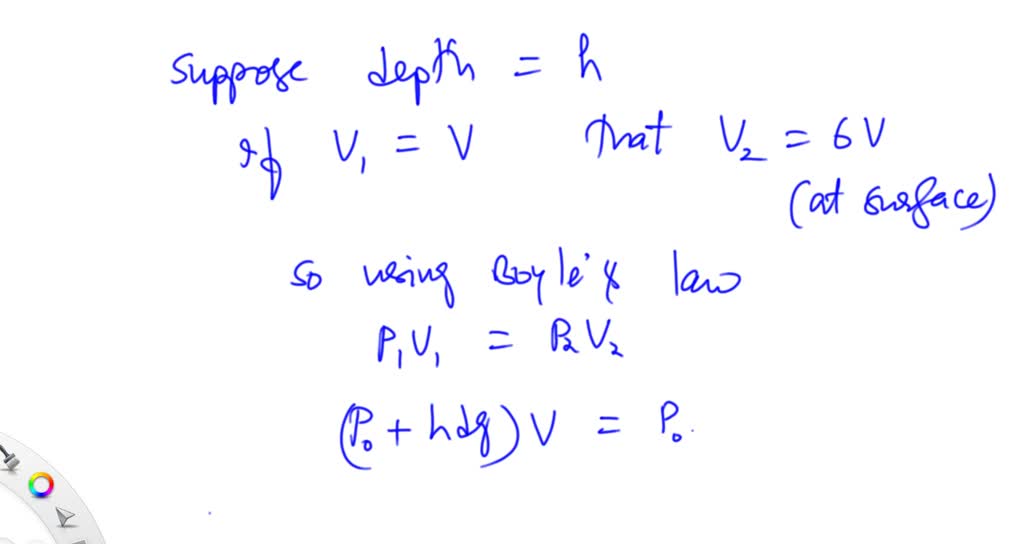 Suppose depth = h
If V₁ = V that V₂ = 6V
(at surface)
So using Boyle's law
P₁V₁ = P₂V₂
(P₀ + hdg)V = P₀